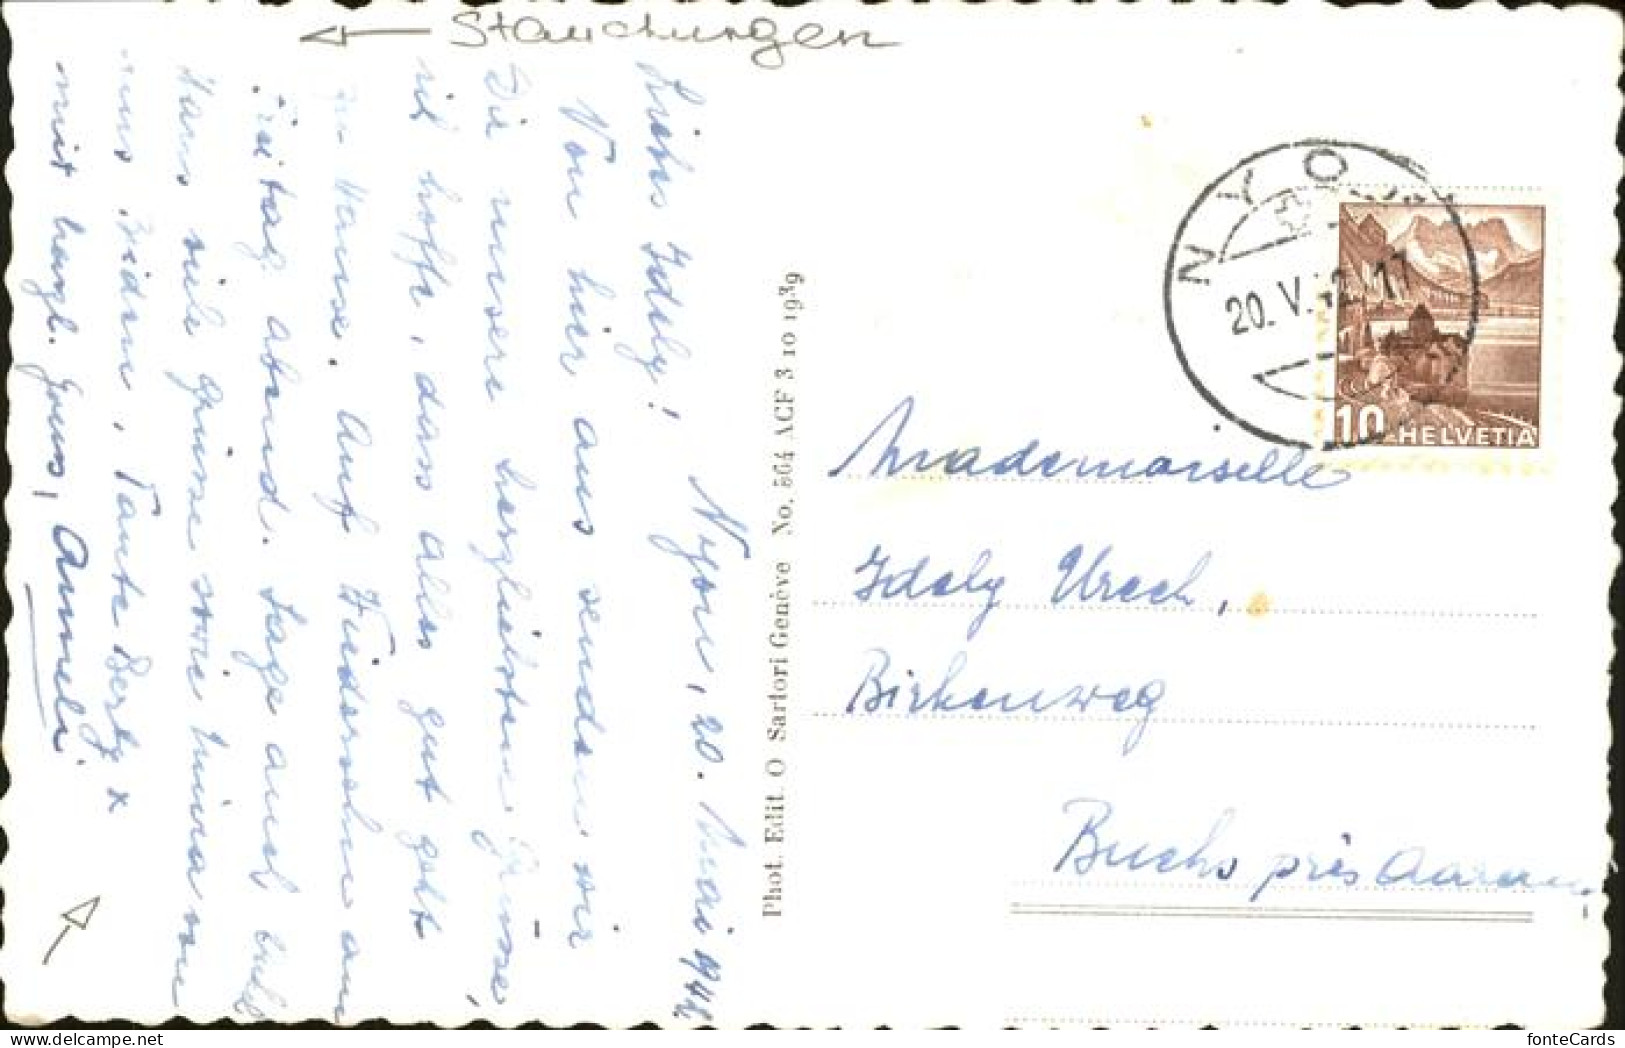 Stauchungen
Nyon, 20. Mai 1942
Liebes Idely!
Von hier aus senden wir
Dir unsere herzlichsten Grüsse,
ich hoffe, dass alles gut geht
zu Hause. Auf Wiedersehn am
Freitag abend. Sage auch
Hans viele Grüsse von
uns beiden, Tante Berty x
mit herzl. Gruss, Anneli
Phot. Edit. O Sartori Genève No. 564 ACF 3 10 1939
NYON
20. V. 42. 17
10 HELVETIA
Mademoiselle
Idely Urech,
Birkenweg
Buchs près Aarau
fonteCards